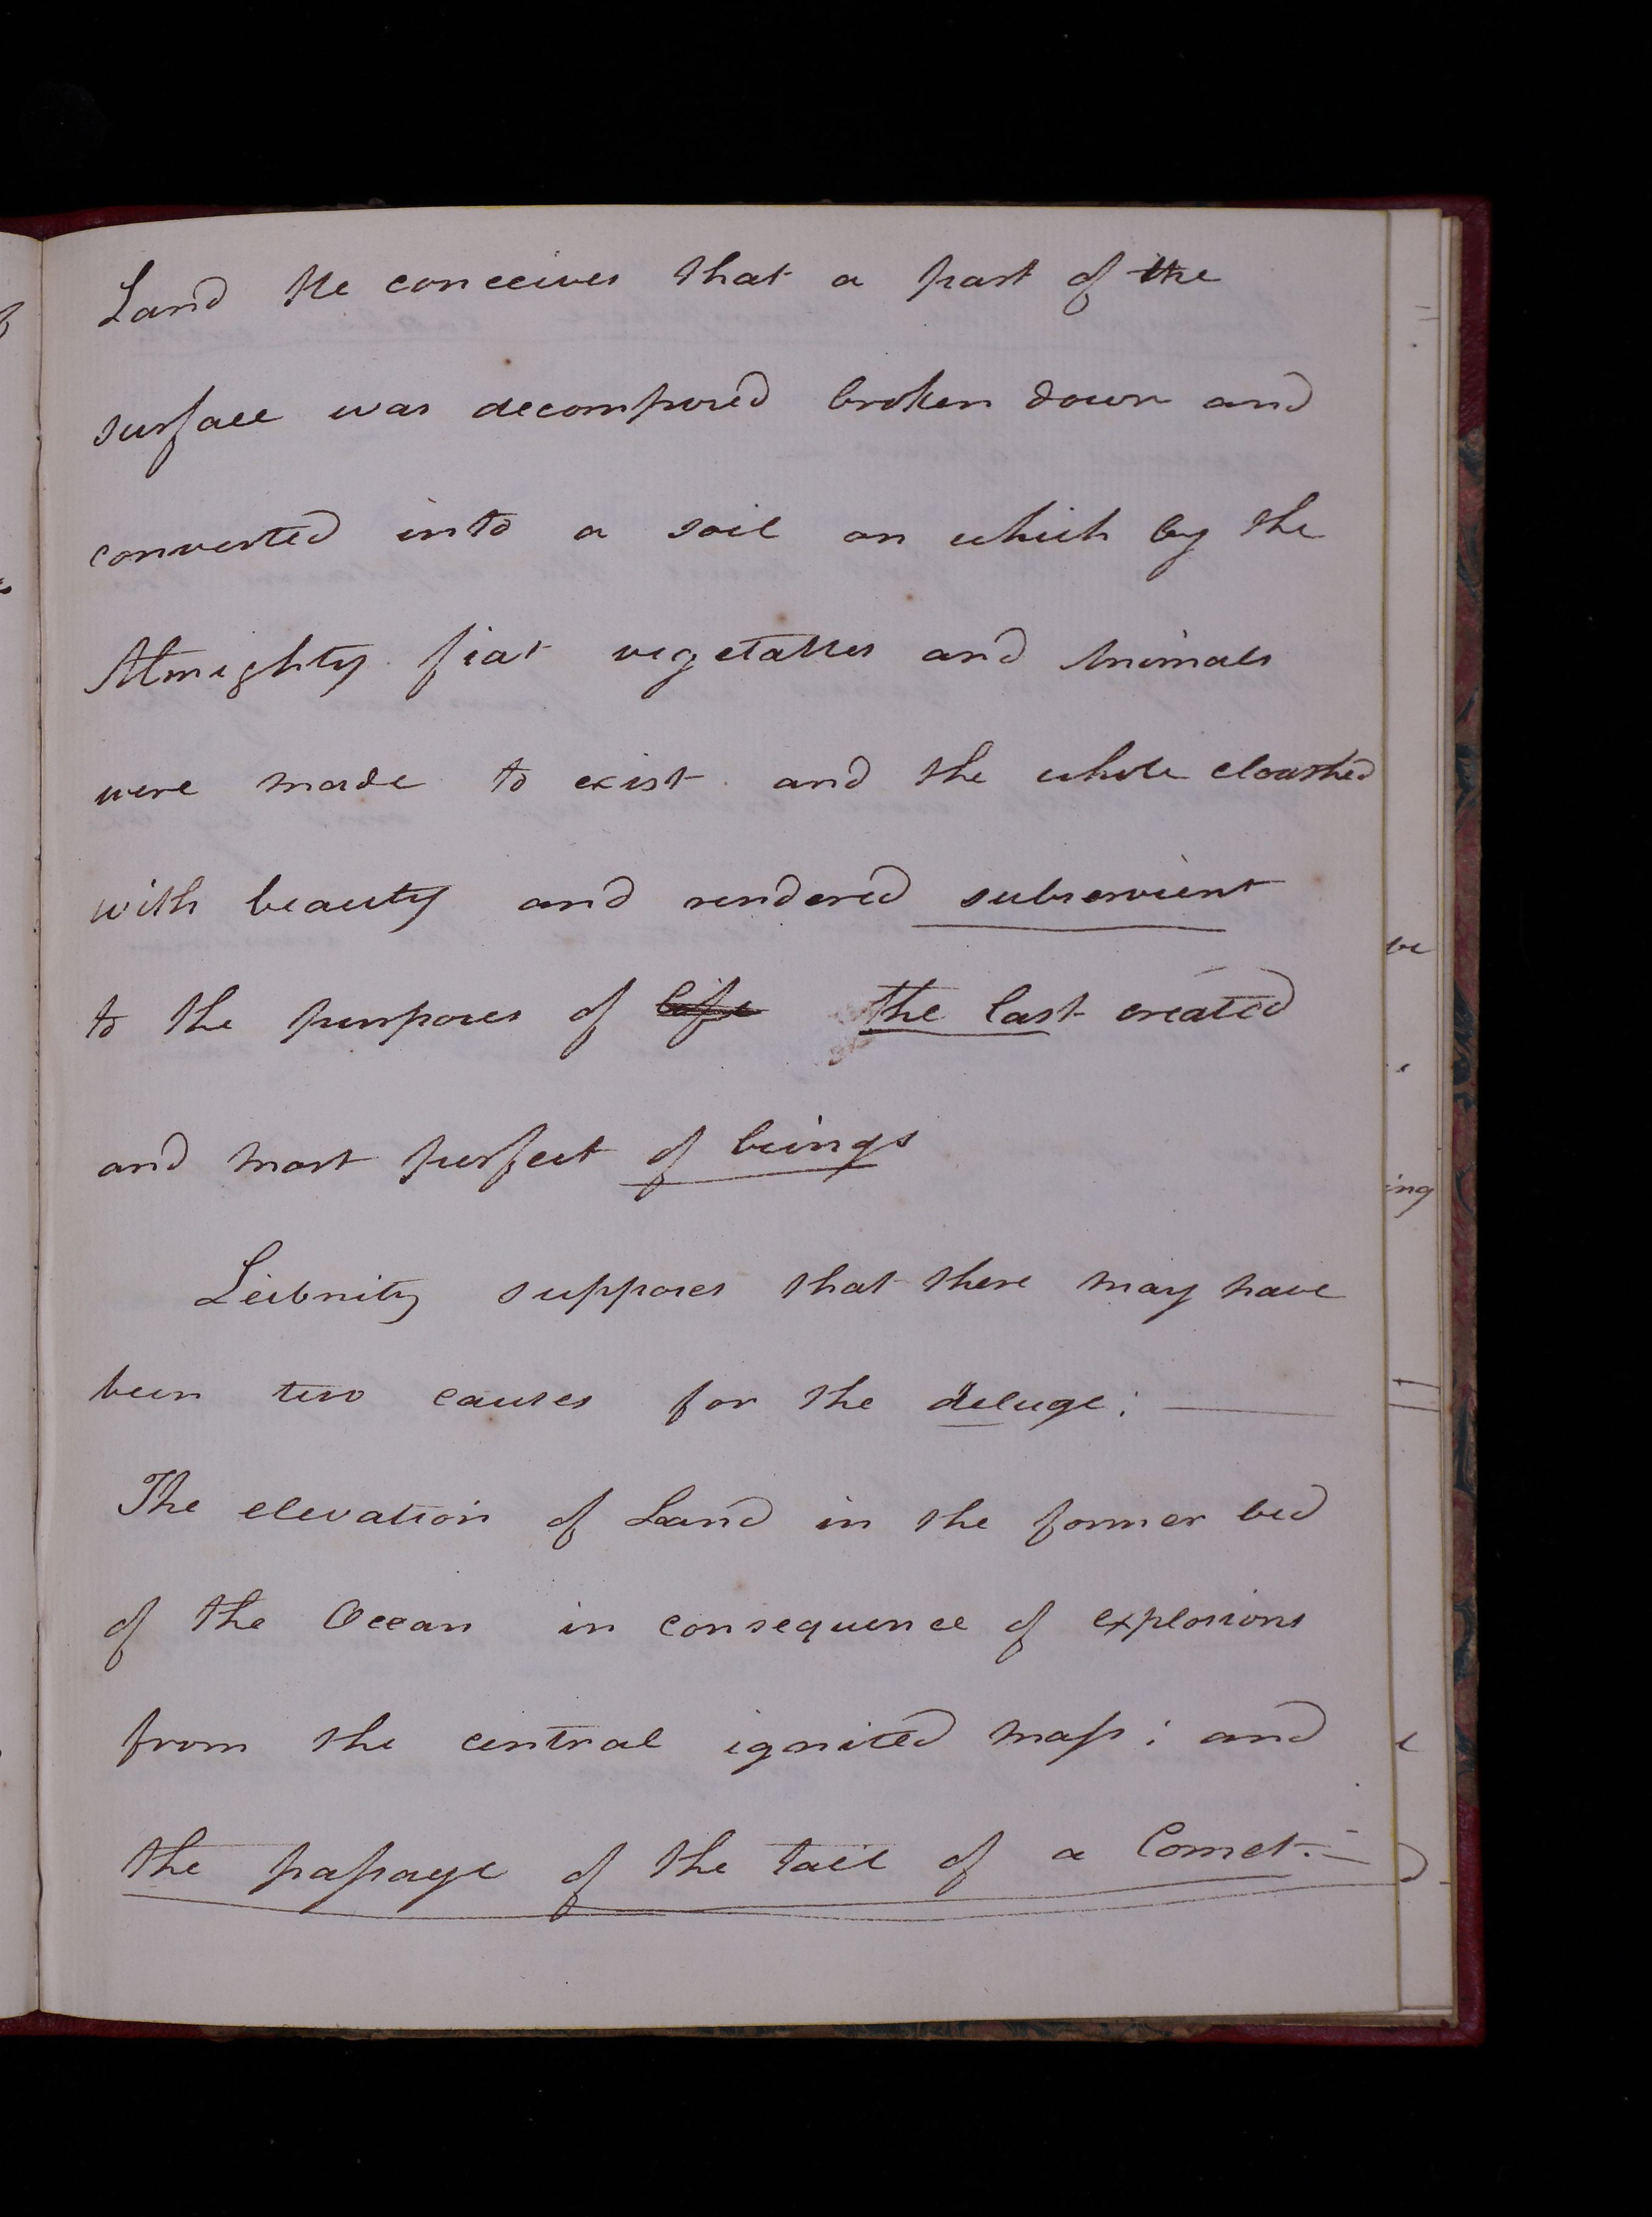 Land He conceives that a part of the
surface was decomposed broken down and
converted into a soil on which by the
Almighty fiat vegetables and Animals
were made to exist and the whole cloathed
with beauty and rendered subservient
to the purposes of life the last created
and most perfect of beings
Leibnitz supposes that there may have
been two causes for the deluge: —
The elevation of Land in the former bed
of the Ocean in consequence of explosions
from the central ignited mass: and
the passage of the tail of a Comet. —